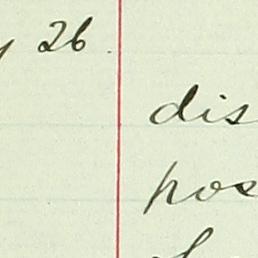 26
dis
pos